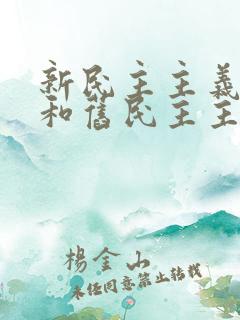 新民主主義
和舊民主主
楊金山
未经同意禁止转载